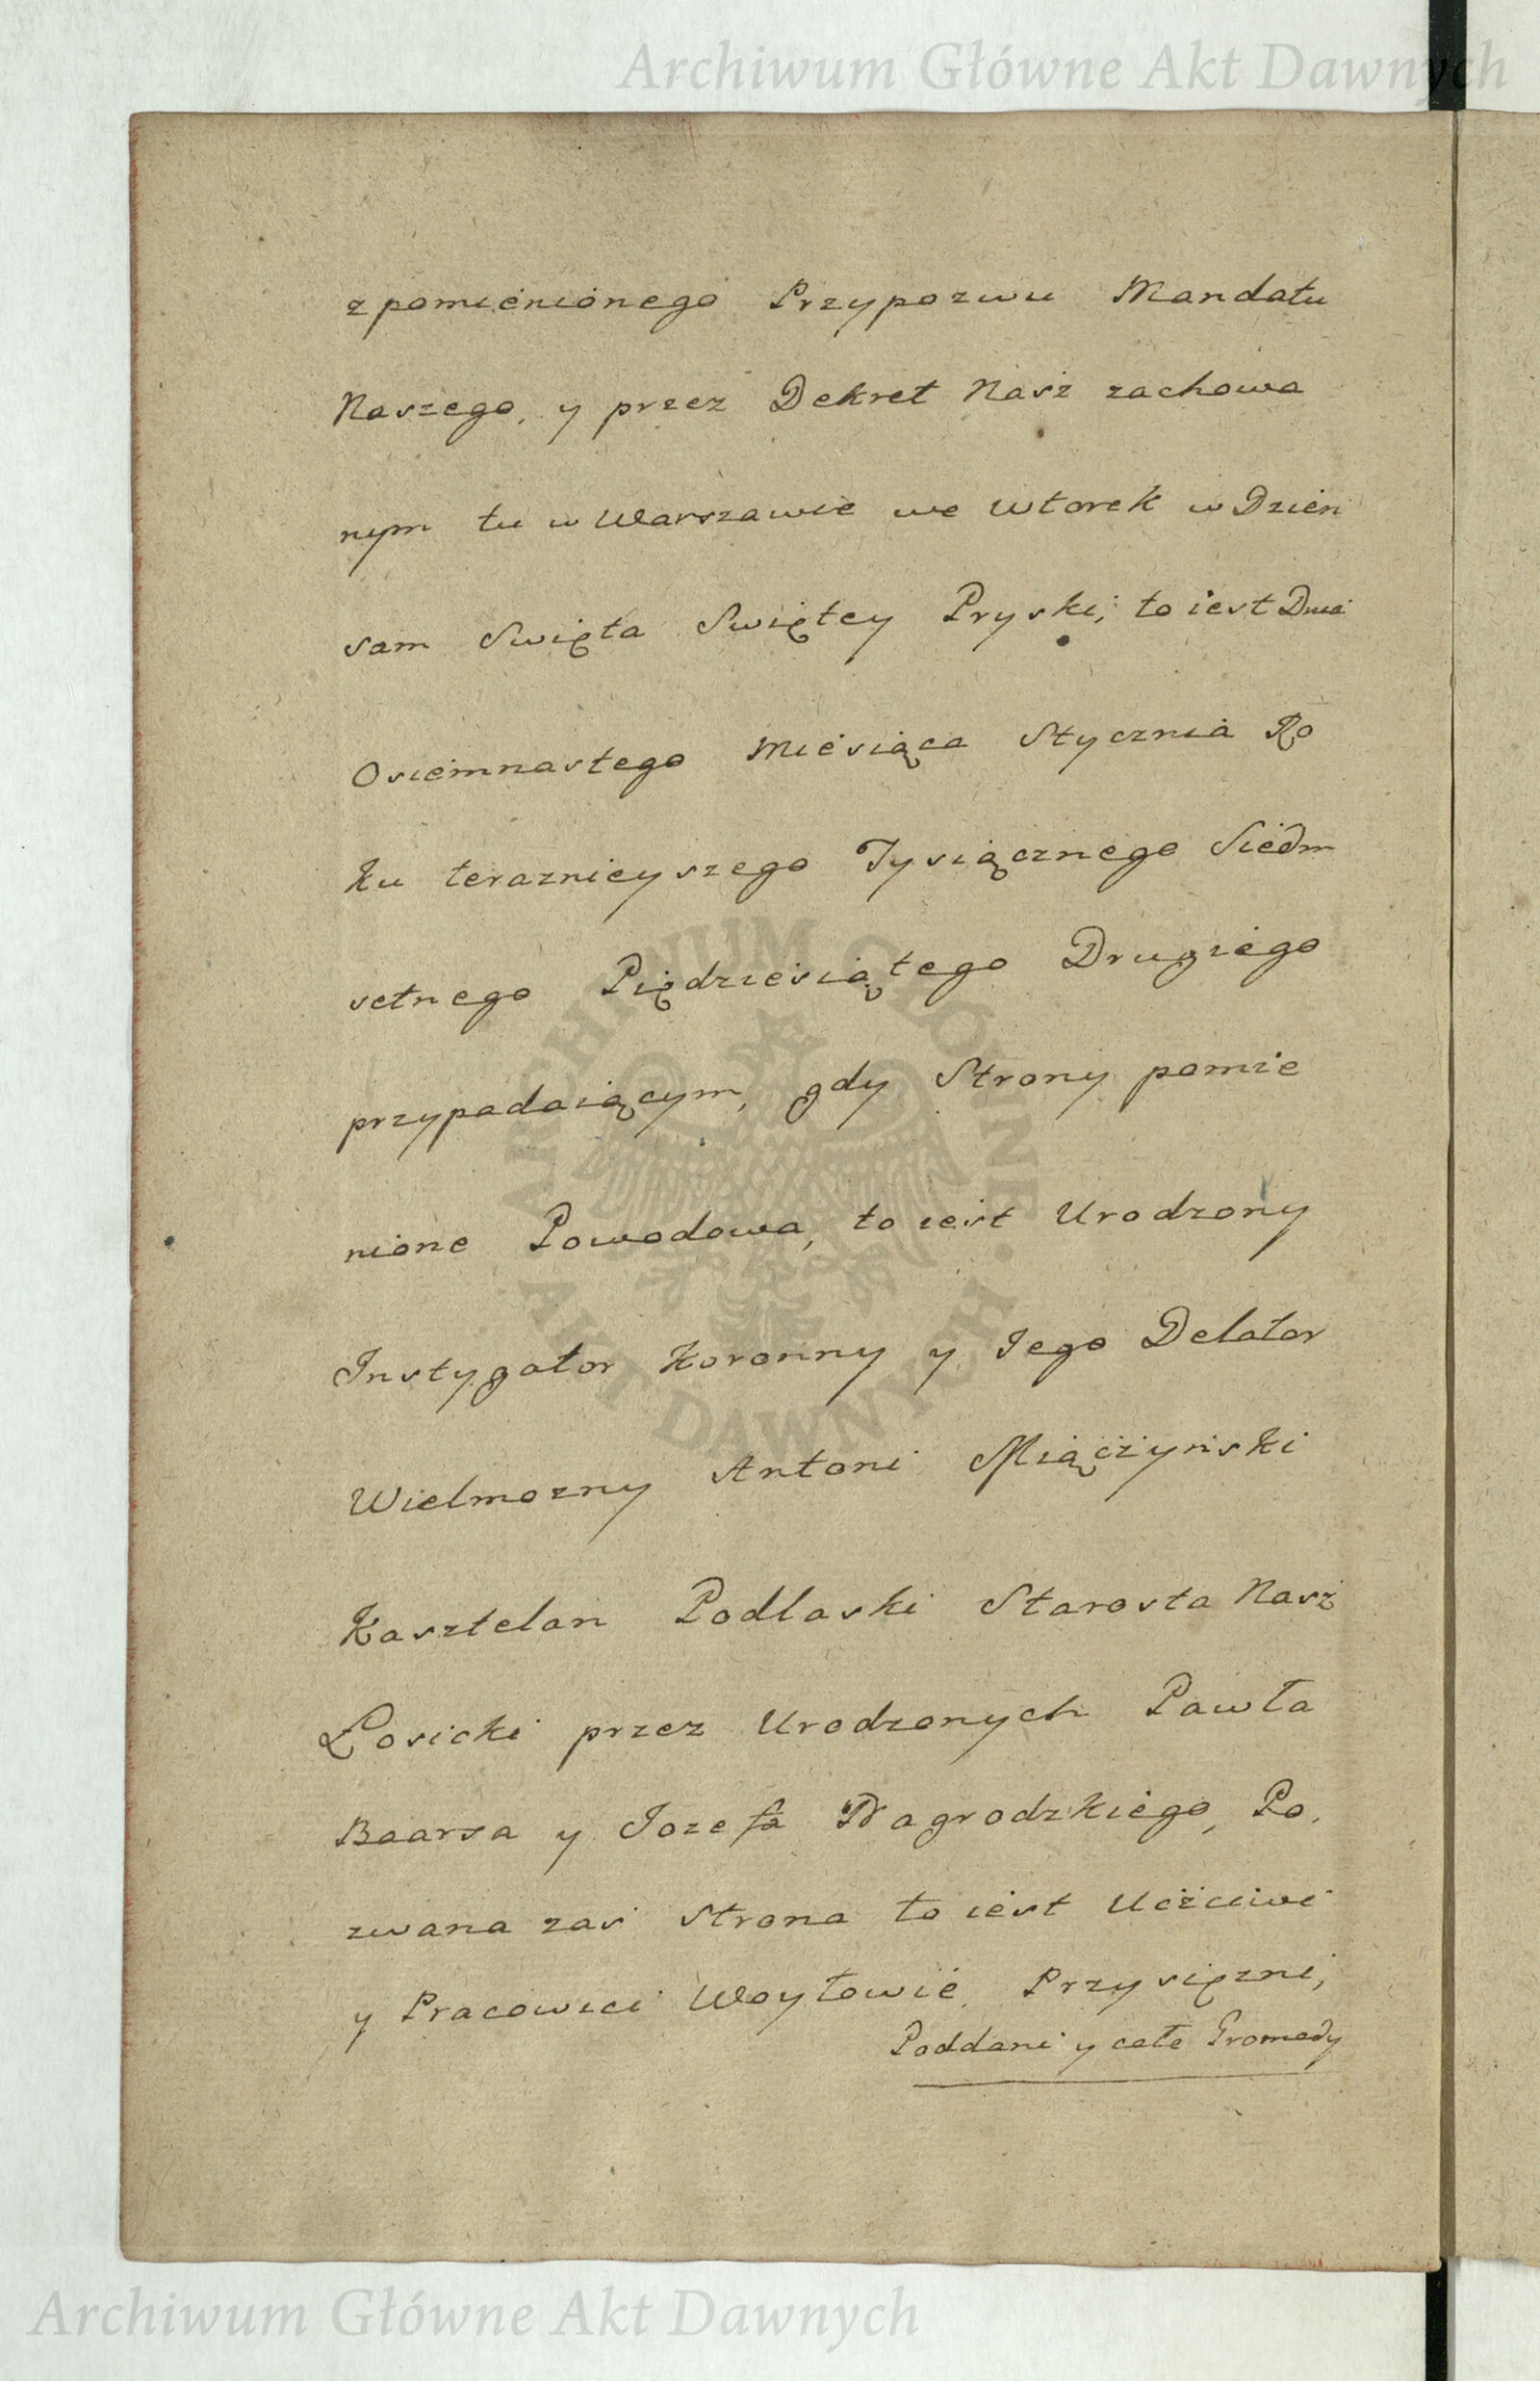 Archiwum Główne Akt Dawnych
z pomienionego Przypozwu Mandatu
Naszego, y przez Dekret Nasz zachowa
nym tu w Warszawie we Wtorek w Dzien
sam Swięta Swiętey Pryski, to iest Dnia
Osiemnastego Miesiąca Stycznia Ro
ku teraznieyszego Tysiącznego Siedm
setnego Piędziesiątego Drugiego
przypadaiącym, gdy Strony pomie
nione Powodowa, to iest Urodzony
Instygator Koronny y Iego Delator
Wielmozny Antoni Miączyński
Kasztelan Podlaski Starosta Nasz
Łosicki przez Urodzonych Pawła
Baarsa y Iozefa Nagrodzkiego, Po,
zwana zas Strona to iest Uczciwi
y Pracowici Woytowie Przysięzni,
Poddani y całe Gromady
ARCHIWUM GŁÓWNE · AKT DAWNYCH ·
Archiwum Główne Akt Dawnych